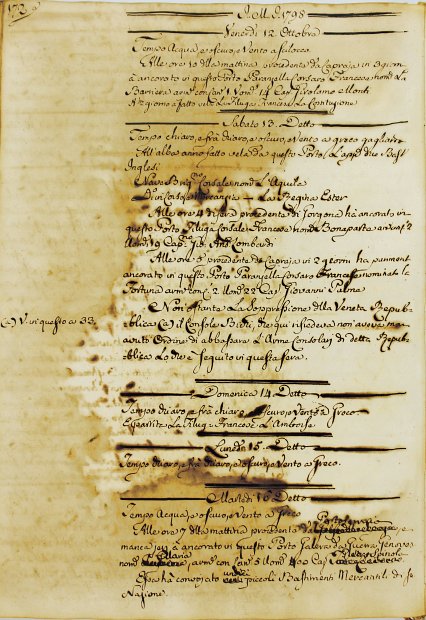 172
A. M. D. 1798
Venerdì 12 Ottobre
Tempo Acqua, e oscuro, Vento a scilocco
Alle ore 10 della mattina procedente da Capraja in 3 giorni
à ancorato in questo Porto Paranzella Corsaro Francese nom.
Barriera arm. con Can. 1 Uom. 14 Cap. Girolamo
A 2 giorno à fatto vela La Filuga Francese La Constituzione
Sabato 13. Detto
Tempo chiaro, e frà diaro, e oscuro, e Vento a greco gagliardo
All'alba anno fatto vela da questo Porto L'app. due Bast.
Inglesi
Nave Brig. Corsale nom. L'Aquila
La Regina Ester
Alle ore 4 di sera procedente di Gorgona hà ancorato in
questo Porto Filuga Corsale Francese nom. Bonaparte
Uom. 19 Cap. Gio. And. Lombardi
Alle ore procedente da Capraja in 2 giorni ha
ancorato in questo Porto Paranzella Corsaro Francese nominata la
Fortuna arm. con C. 2. Uom. 22 Cap. Giovanni
Non ostante La Soppressione della Veneta Repub-
blica (a) il Console che qui risiedeva non aveva mai
(a) V. in questo a 33.
avuto Ordine di abbassare L'Arme Consolari di detta Repub-
blica Lo che è seguito in questa sera.
Domenica 14 Detto
Tempo diaro, e frà chiaro e oscuro, e Vento a Greco
La Filug. Francese L'Amboise
Lunedì 15. Detto
Tempo diaro, e frà diaro, e oscuro, e Vento a Greco.
Martedì 16 Detto
Tempo Acqua, e oscuro, e Vento a Greco
Alle ore 7 della mattina procedente da
à ancorato in questo Porto Galera da Guerra Genovese
nom. arm. con Can. 5 Uom. 400 Cap. Spinola
Essa hà convojato undici piccoli Bastimenti Mercantili di sua
Nazione.